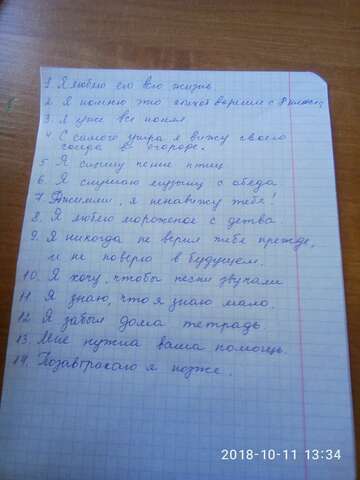 1. Я люблю его всю жизнь
2. Я помню это стихотворение с 8 класса
3. Я уже всё понял
4. С самого утра я вижу своего
соседа в огороде.
5 Я слышу пение птиц
6. Я слушаю музыку с обеда
7. Джимми, я ненавижу тебя!
8. Я люблю мороженое с детства
9. Я никогда не верил тебе прежде,
и не поверю в будущем.
10. Я хочу, чтобы песни звучали
11. Я знаю, что я знаю мало.
12. Я забыл дома тетрадь
13. Мне нужна ваша помощь.
14. Позавтракаю я позже.
2018-10-11 13:34